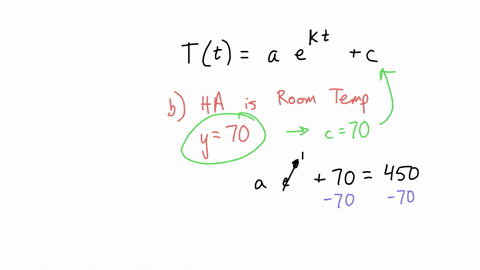 T(t) = a e^{kt} + c
b) HA is Room Temp
y = 70 → c = 70
a e^1 + 70 = 450
-70 -70